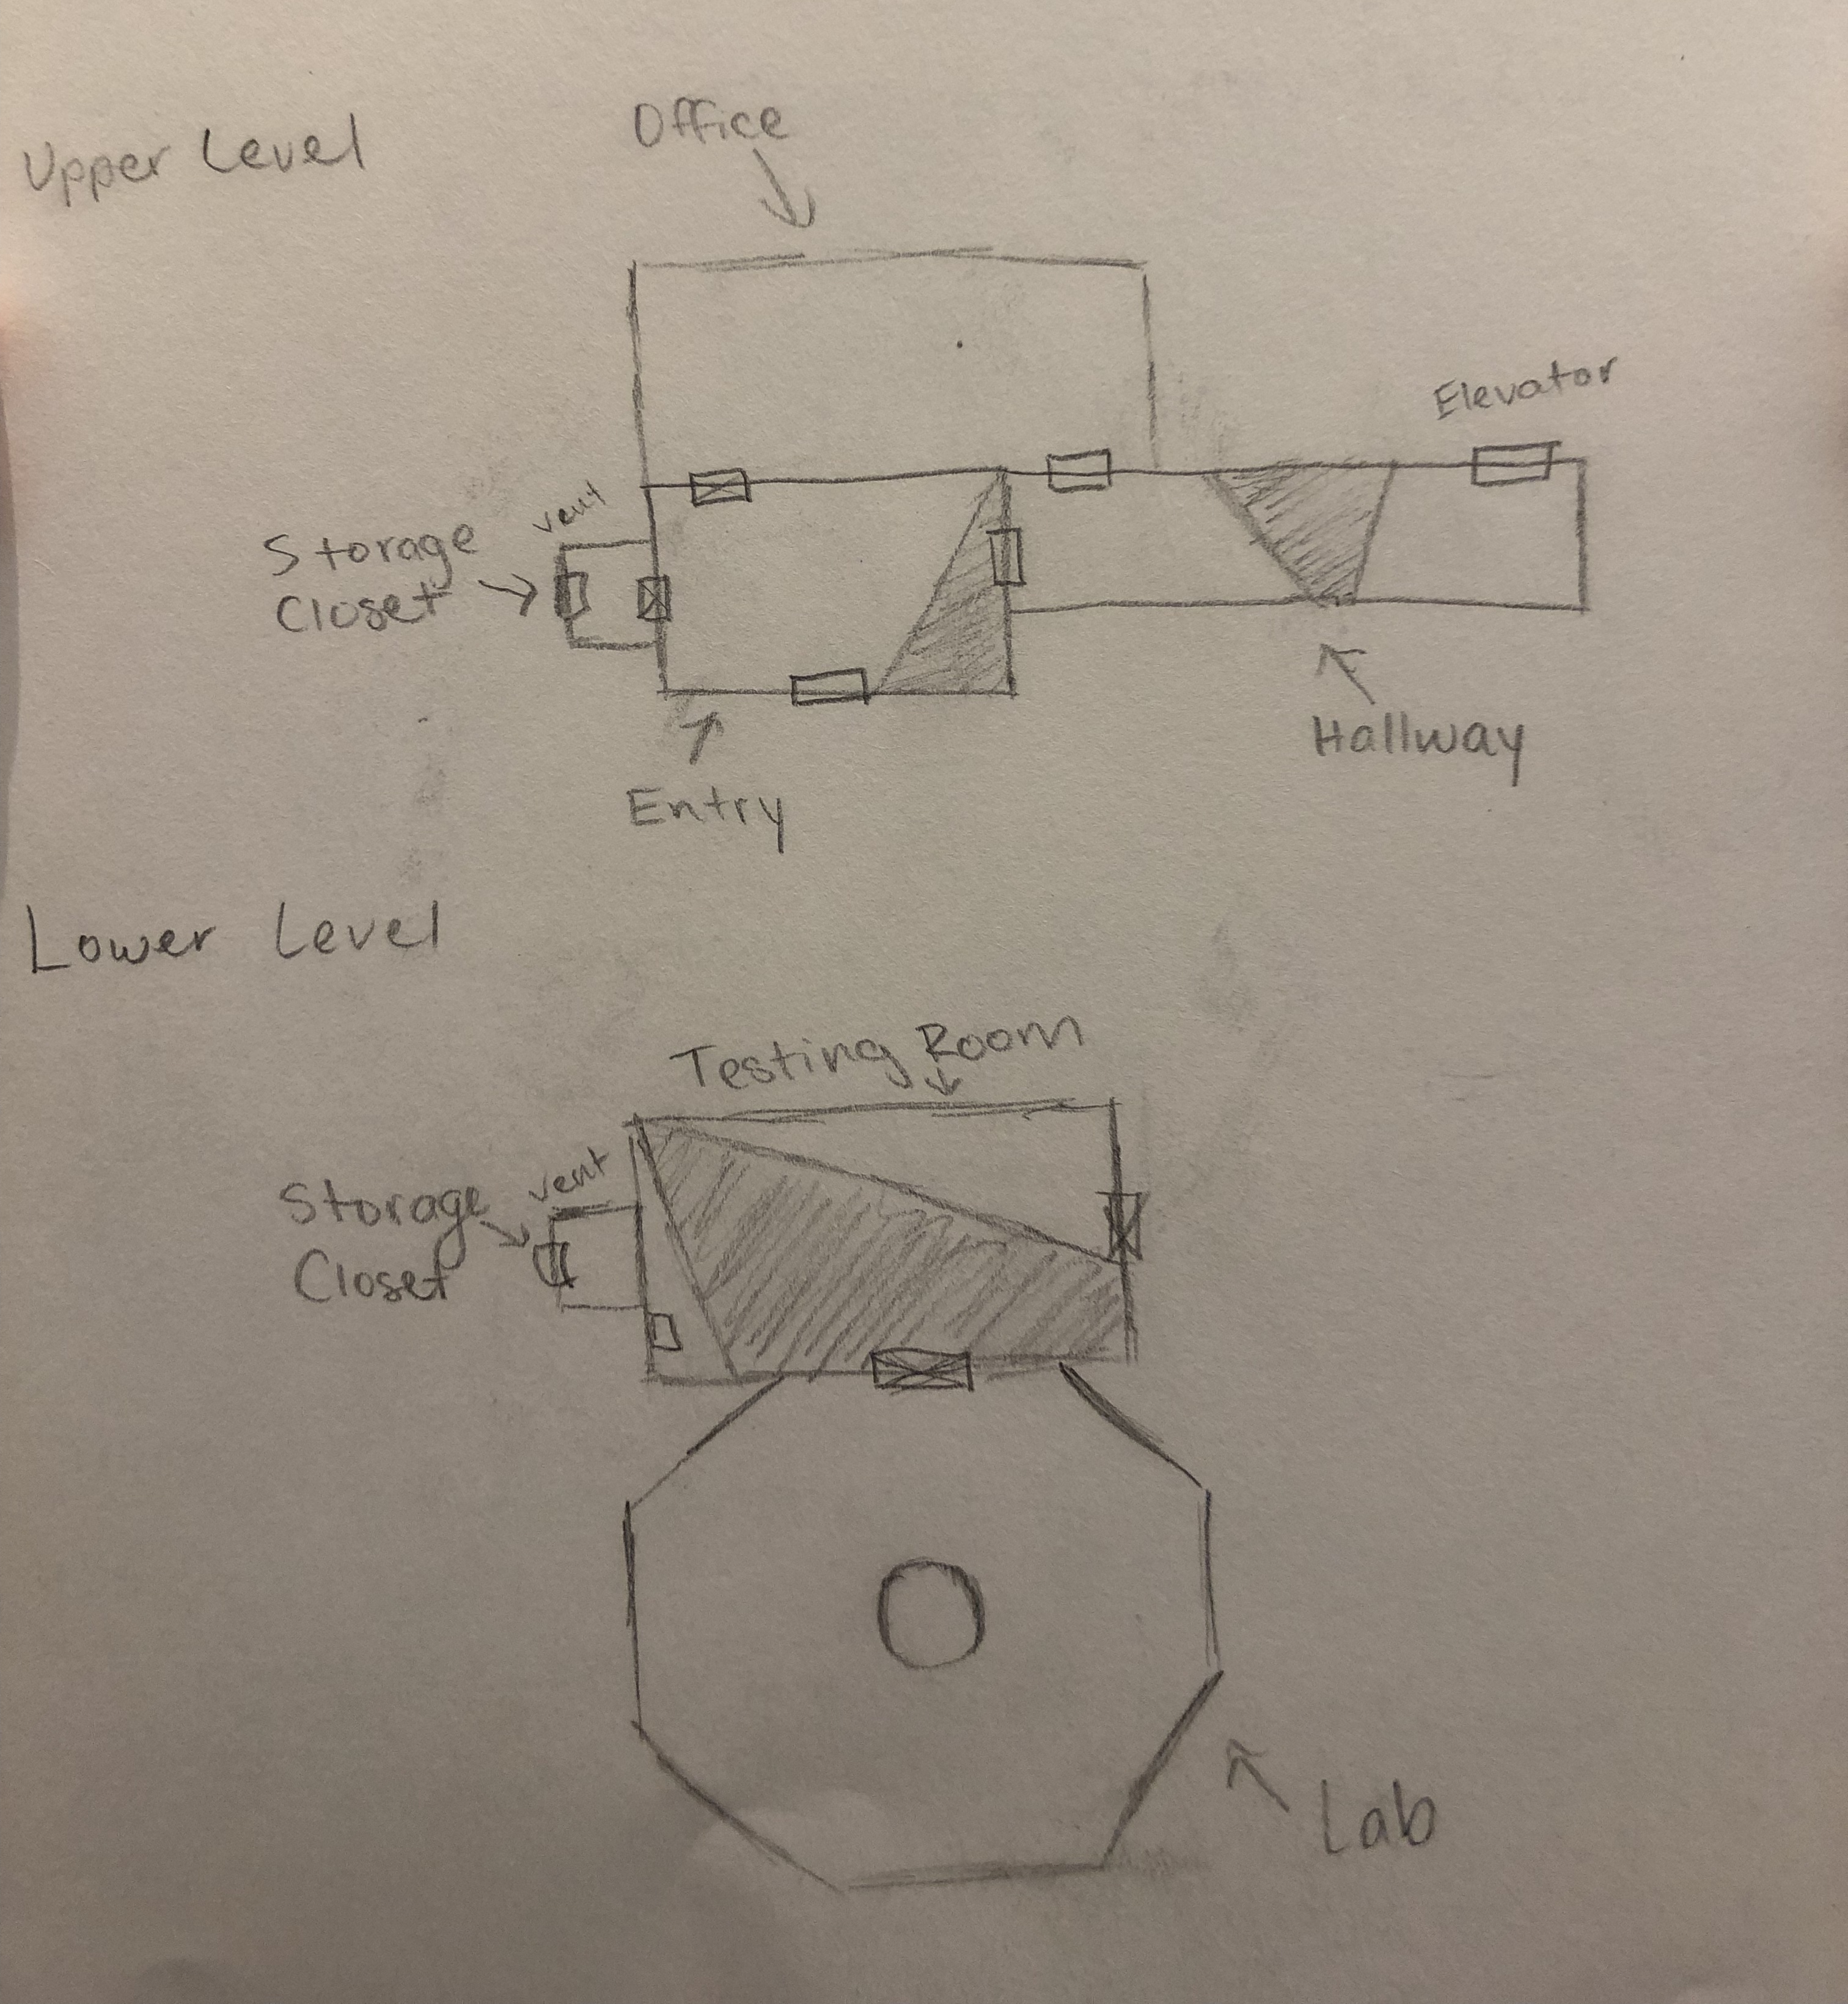 Upper Level
Office
Elevator
vent
Storage
Closet
Hallway
Entry
Lower Level
Testing Room
vent
Storage
Closet
Lab